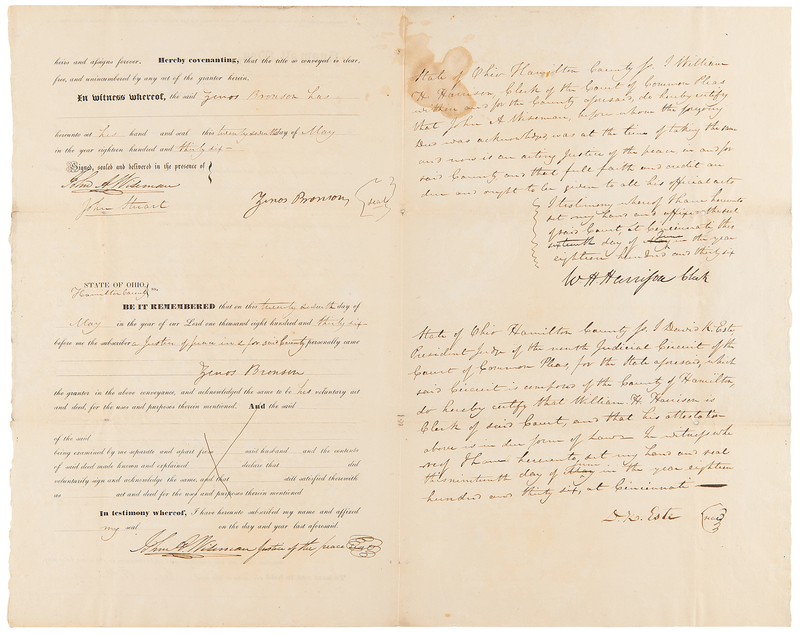 heirs and assigns forever. Hereby covenanting, that the title so conveyed is clear,
free, and unincumbered by any act of the grantor herein.
In Witness whereof, the said Zenos Bronson has
hereunto set his hand and seal this twenty seventh day of May
in the year eighteen hundred and thirty six
Signed, sealed and delivered in the presence of
John A Wiseman
John Stuart
Zenos Bronson seal
STATE OF OHIO,
Hamilton County ss
BE IT REMEMBERED that on this twenty seventh day of
May in the year of our Lord one thousand eight hundred and thirty six
before me the subscriber a Justice of peace in & for said County personally came
Zenos Bronson
the grantor in the above conveyance, and acknowledged the same to be his voluntary act
and deed, for the uses and purposes therein mentioned. And the said
of the said
being examined by me separate and apart from said husband and the contents
of said deed made known and explained declare that did
voluntarily sign and acknowledge the same, and that still satisfied therewith
as act and deed for the uses and purposes therein mentioned
In testimony whereof, I have hereunto subscribed my name and affixed
my seal on the day and year last aforesaid.
John A Wiseman Justice of the peace
State of Ohio Hamilton County ss. I William
H. Harrison, Clerk of the Court of Common Pleas
within and for the County aforesaid, do hereby certify
that John A Wiseman, before whom the foregoing
Deed was acknowledged, was at the time of taking the same
and now is an acting Justice of the peace in and for
said County and that full faith and credit are
due and ought to be given to all his official acts
In testimony whereof I have hereunto
set my hand and affixed the seal
of said Court at Cincinnati this
sixteenth day of June in the year
eighteen hundred and thirty six
W H Harrison Clerk
State of Ohio Hamilton County ss. I David K. Este
President Judge of the ninth Judicial Circuit of the
Court of Common Pleas, for the State aforesaid, which
said Circuit is composed of the County of Hamilton,
do hereby certify that William H. Harrison is
Clerk of said Court, and that his attestation
above is in due form of Law. In witness whe
reof I have hereunto, set my hand and seal
this nineteenth day of June in the year eighteen
hundred and thirty six, at Cincinnati
D. K. Este seal